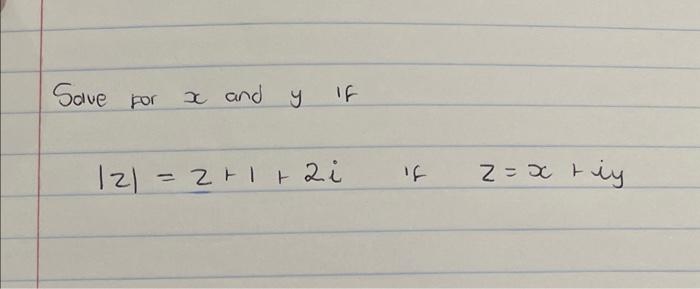 Solve for x and y if
|z| = z + 1 + 2i if z = x + iy